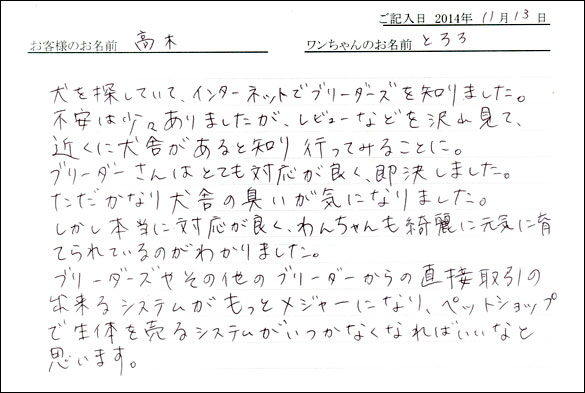 ご記入日 2014年 11月 13日
お客様のお名前 高木 ワンちゃんのお名前 とろろ
犬を探していて、インターネットでブリーダーズを知りました。
不安は少々ありましたが、レビューなどを沢山見て、
近くに犬舎があると知り行ってみることに。
ブリーダーさんはとても対応が良く、即決しました。
ただかなり犬舎の臭いが気になりました。
しかし本当に対応が良く、わんちゃんも綺麗に元気に育
てられているのがわかりました。
ブリーダーズやその他のブリーダーからの直接取引の
出来るシステムがもっとメジャーになり、ペットショップ
で生体を売るシステムがいつかなくなればいいなと
思います。